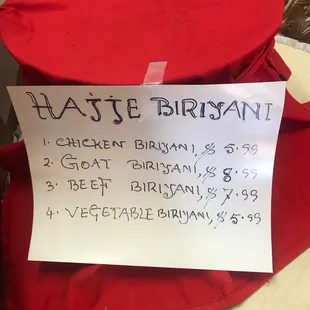 HAJJE BIRIYANI
1. CHICKEN BIRIYANI, $ 5.99
2. GOAT BIRIYANI, $ 8.99
3. BEEF BIRIYANI, $ 7.99
4. VEGETABLE BIRIYANI, $ 5.99